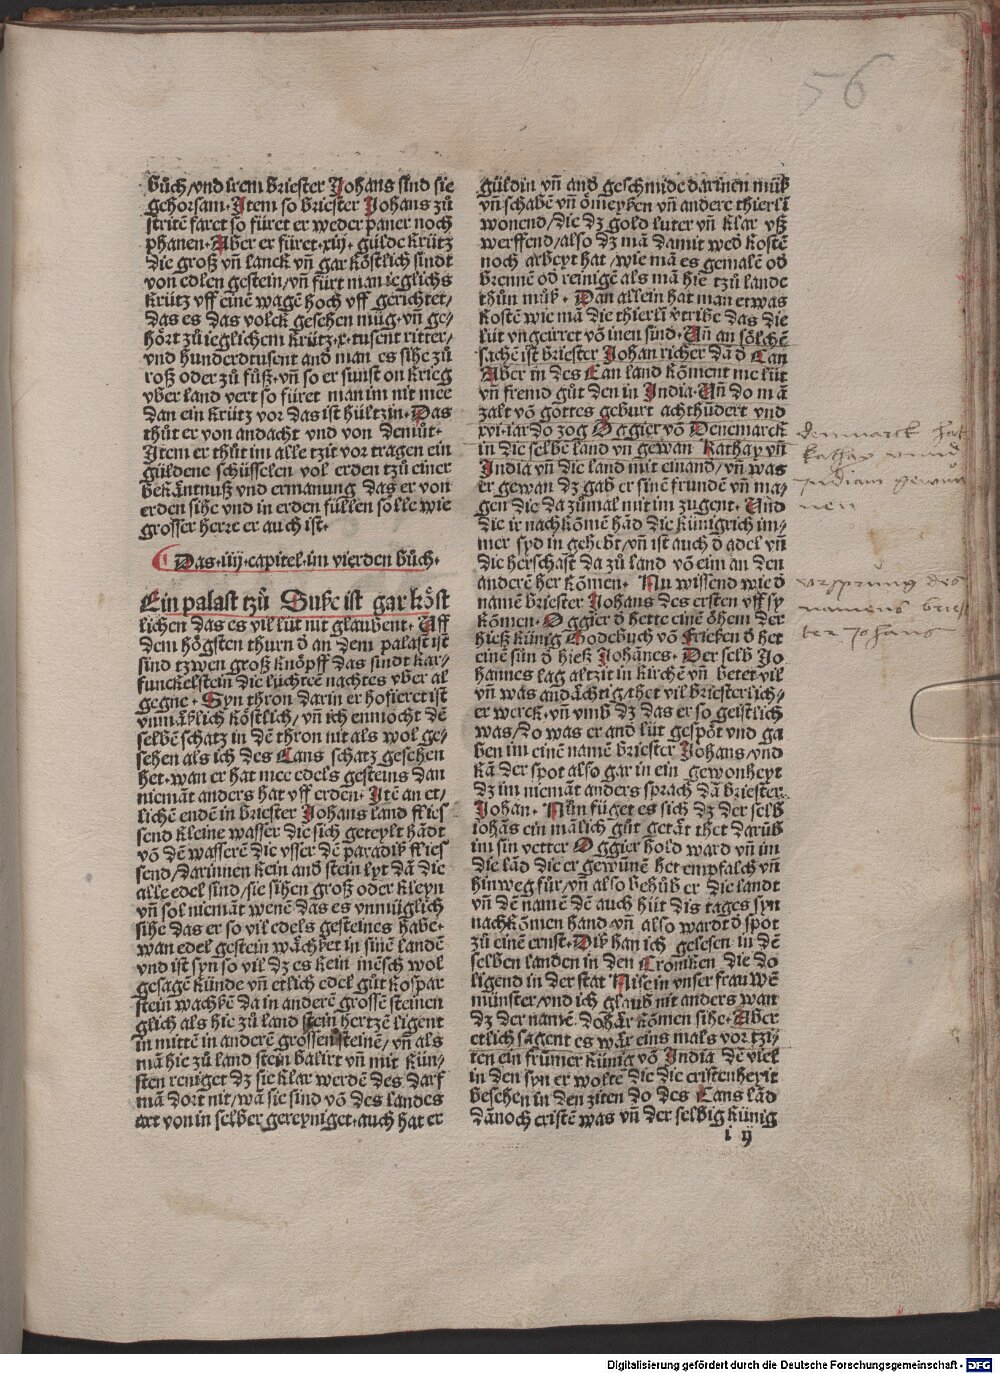 56
bůch/vnd irem briester Johans sind sie
gehorsam· Item so briester Johans zů
stritē faret so füret er weder paner noch
phanen· Aber er füret·xiij· gülde krütz
die groß vñ lanck vñ gar köstlich sindt
von edlen gestein/vñ fürt man ieglichs
krütz vff einē wagē hoch vff gerichtet/
das es das volck gesehen müg·vñ ge/
hört zů ieglichem krütz·x·tusent ritter/
vnd hunderdtusent and man es sihe zů
roß oder zů fůß·vñ so er sunst on krieg
vber land vert so füret man im nit mee
dan ein krütz vor das ist hültzin· Das
thůt er von andacht vnd von demůt·
Item er thůt im alle tzit vor tragen ein
güldene schüsselen vol erden tzů einer
bekäntnuß vnd ermanung das er von
erden sihe vnd in erden füllen sölle wie
grosser herre er auch ist·
Das·iiij·capitel·im vierden bůch·
Ein palast tzů Suße ist gar köst
lichen das es vil lüt nit glaubent· Uff
dem högsten thurn ð an dem palast ist
sind tzwen groß knöpff das sindt kar/
funckelstein die lüchtē nachtes vber al
gegne· Syn thron darin er hofieret ist
vnmäßlich köstlich/vñ ich enmöcht dē
selbē schatz in dē thron nit als wol ge/
sehen als ich des Cans schatz gesehen
het·wan er hat mee edels gesteins dan
niemāt anders hat vff erden· Itē an et/
lichē endē in briester Johans land flies
send kleine wasser die sich geteylt hādt
vō dē wasserē die vsser dē paradiß flies
send/darinnen kein and stein lyt dā die
alle edel sind/sie sihen groß oder kleyn
vñ sol niemāt wenē das es vnmüglich
sihe das er so vil edels gesteines habe·
wan edel gestein wächßet in sinē landē
vnd ist syn so vil dz es kein mēsch wol
gesagē künde vñ etlich edel gůt kospar
stein wachßē da in anderē grossē steinen
glich als hie zů land stein hertzē ligent
in mittē in anderē grossen steinē/vñ als
mā hie zů land stein balirt vñ mit kün/
sten reniget dz sie klar werdē des darf
mā dort nit/wā sie sind vō des landes
art von in selber gereyniget·auch hat er
güldin vñ and geschmide darinen müß
vñ schabē vñ ömeyßen vñ andere thierli
wonend/die dz gold luter vñ klar vß
werffend/also dz mā damit wed kostē
noch arbeyt hat/wie mā es gemalē od
brennē od reinigē als mā hie tzů lande
thůn můß· Dan allein hat man etwas
kostē wie mā die thierli vtribe das die
lüt vngeirret vō inen sind· Uñ an sölchē
sachē ist briester Johan richer dā ð Can
Aber in des Can land kōment me lüt
vñ fremd gůt den in India· Uñ do mā
zalt vō gottes geburt achthūdert vnd
xvi·iar do zog Oggier vō Denemarck
in die selbē land vñ gewan Kathay vñ
India vñ die land mit einand/vñ was
er gewan dz gab er sinē frundē vñ ma/
gen die da zůmal mit im zugent· Und
die ir nachkōmē hād die künigrich im/
mer syd in gehebt/vñ ist auch ð adel vñ
die herschaft da zů land vō eim an den
anderē her kōmen· Nu wissend wie ð
namē briester Johans des ersten vff sy
kōmen· Oggier ð hette einē öhem der
hieß künig Godebuch vō Frießen ð het
einē sün ð hieß Johānes· Der selb Jo
hannes lag altzit in kirchē vñ betet vil
vñ was andächtig/thet vil briesterlich/
er werck·vñ vmb dz das er so geistlich
was/do was er and lüt gespöt vnd ga
ben im einē namē briester Johans/vnd
kā der spot also gar in ein gewonheyt
dz im niemāt anders sprach dā briester
Johan· Nůn füget es sich dz der selb
iohās ein mālich gůt getāt thet darüb
im sin vetter Oggier hold ward vñ im
die lād die er gewūnē het empfalch vñ
hinweg für/vñ also behůb er die landt
vñ dē namē dē auch hüt dis tages syn
nachkōmen hand vñ also wardt ð spot
zů einē ernst· Diß han ich gelesen in dē
selben landen in den Croniken die do
ligend in der stat Nise in vnser frauwē
münster/vnd ich glaub nit anders wan
dz der namē dohār kōmen sihe· Aber
etlich sagent es wār eins mals vor tzi/
ten ein frümer künig vō India dē viel
in den syn er woltē die die cristenheyit
besehen in den ziten do des Cans lād
dānoch cristē was vñ der selbig künig
i ij
dennmarck hat
kathay vnnd
Indiam gewun
nen
vrsprung des
namens bries
ter Johans
Digitalisierung gefördert durch die Deutsche Forschungsgemeinschaft - DFG